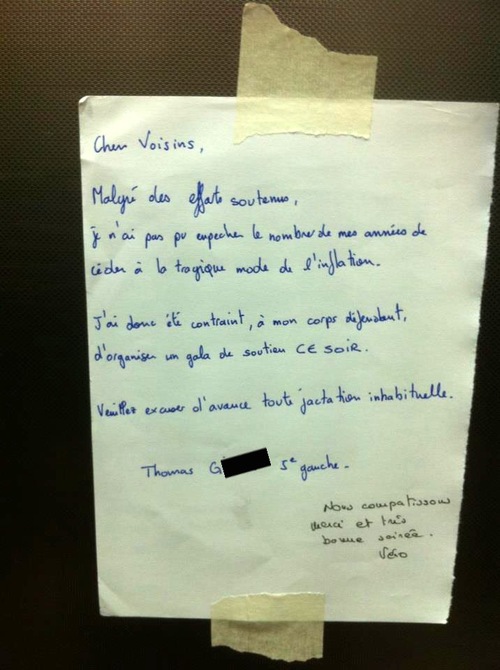 Chers Voisins,
Malgré des efforts soutenus,
je n'ai pas pu empecher le nombre de mes années de
céder à la tragique mode de l'inflation.
J'ai donc été contraint, à mon corps défendant,
d'organiser un gala de soutien CE SOIR.
Veuillez excuser d'avance toute jactation inhabituelle.
Thomas G 5e gauche.
Nous compatissons
merci et très
bonne soirée.
Véro